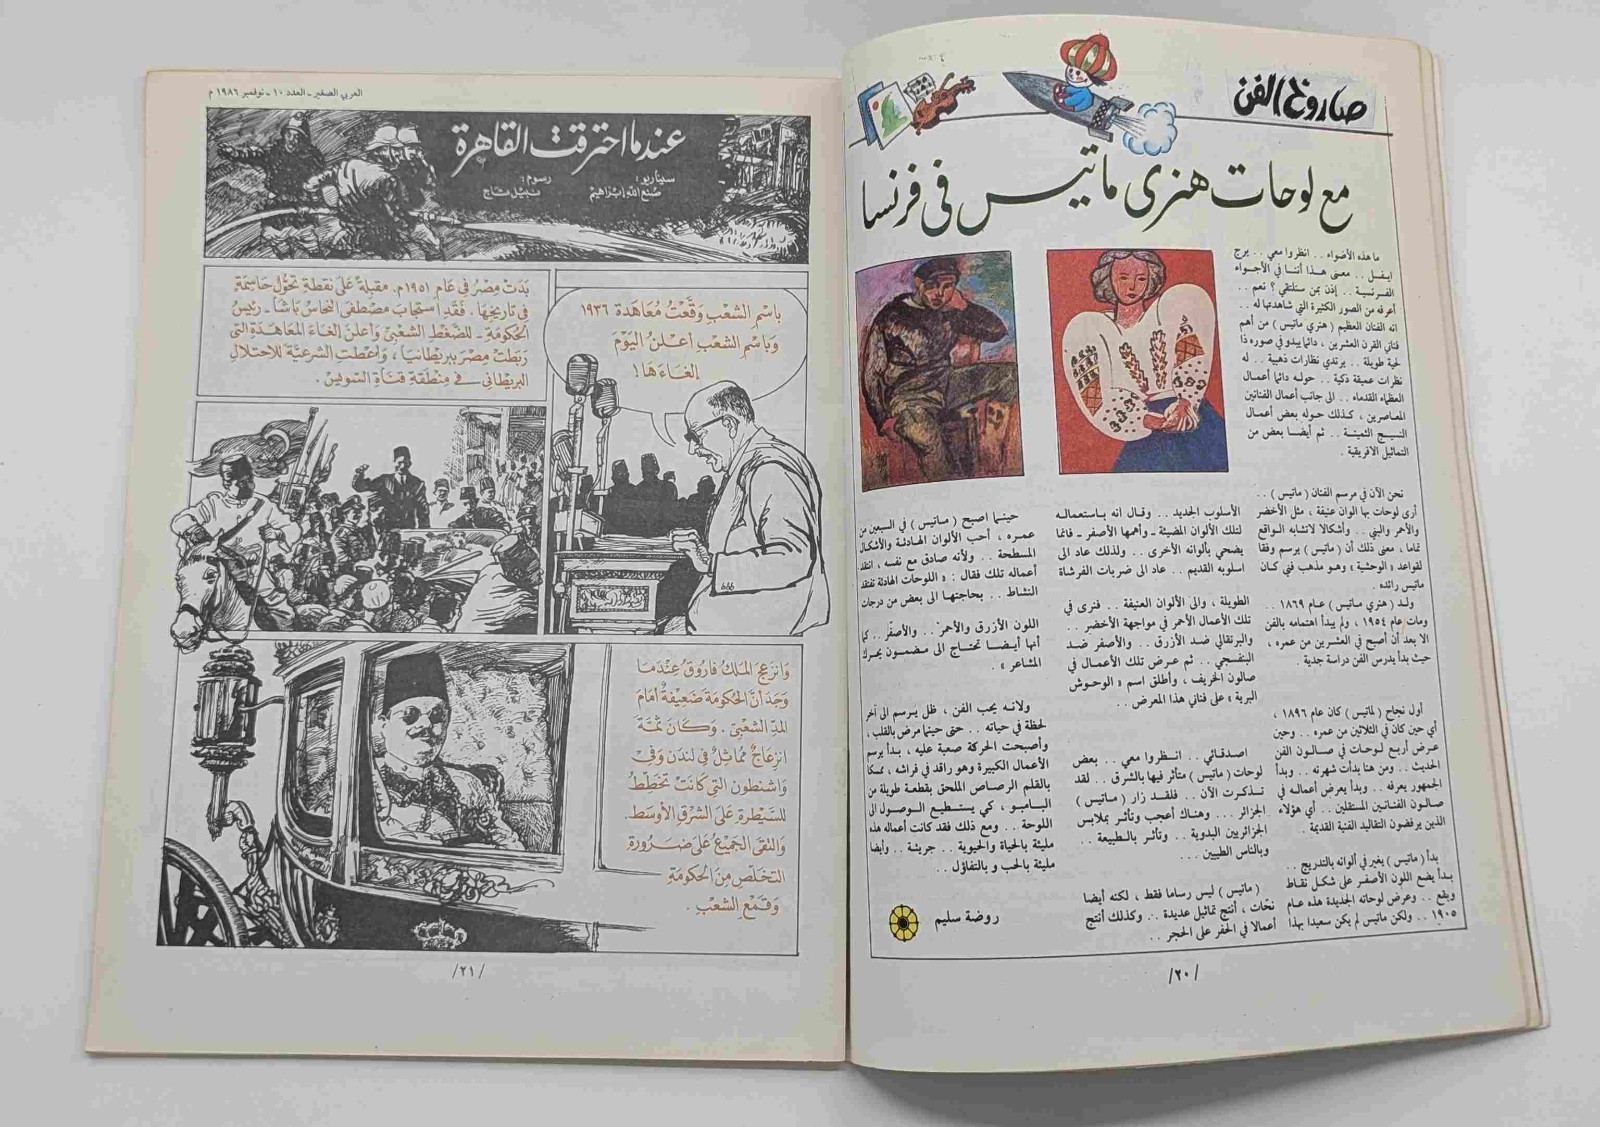 صاروخ الفن
مع لوحات هنرى ماتيس فى فرنسا
ما هذه الأضواء . . انظروا معي . . برج
ايفيل . . معنى هذا أننا في الأجواء
الفرنسية . . إذن بمن سنلتقي ؟ نعم . .
أعرفه من الصور الكثيرة التي شاهدتها له . .
انه الفنان العظيم ( هنري ماتيس ) من أهم
فناني القرن العشرين ، دائما يبدو في صوره ذا
لحية طويلة . . يرتدي نظارات ذهبية . . له
نظرات عميقة ذكية . . حوله دائما أعمال
العظماء القدماء . . الى جانب أعمال الفنانين
المعاصرين ، كذلك حوله بعض أعمال
النسيج الثمينة . . ثم أيضا بعض من
التماثيل الأفريقية .
نحن الآن في مرسم الفنان ( ماتيس ) . .
أرى لوحات بها الوان عنيفة ، مثل الأخضر
والأحمر والبني . . وأشكالا لاتشابه الواقع
تماما ، معنى ذلك أن ( ماتيس ) يرسم وفقا
لقواعد « الوحشية » وهو مذهب فني كان
ماتيس رائده .
ولد ( هنري ماتيس ) عام ١٨٦٩ . .
ومات عام ١٩٥٤ ، ولم يبدأ اهتمامه بالفن
الا بعد أن أصبح في العشرين من عمره ،
حيث بدأ يدرس الفن دراسة جدية .
أول نجاح ( لماتيس ) كان عام ١٨٩٦ ،
أي حين كان في الثلاثين من عمره . . وحين
عرض أربع لوحات في صالون الفن
الحديث . . ومن هنا بدأت شهرته . . وبدأ
الجمهور يعرفه . . وبدأ يعرض أعماله في
صالون الفنانين المستقلين . . أي هؤلاء
الذين يرفضون التقاليد الفنية القديمة . .
بدأ ( ماتيس ) يغير في ألوانه بالتدريج . .
بدأ يضع اللون الأصفر على شكل نقاط
وبقع . . وعرض لوحاته الجديدة هذه عام
١٩٠٥ . . ولكن ماتيس لم يكن سعيدا بهذا
الأسلوب الجديد . . وقال انه باستعماله
لتلك الألوان المضيئة ـ وأهمها الأصفر ـ فانما
يضحي بألوانه الأخرى . . ولذلك عاد الى
اسلوبه القديم . . عاد الى ضربات الفرشاة
الطويلة ، والى الألوان العنيفة . . فنرى في
تلك الأعمال الأحمر في مواجهة الأخضر . .
والبرتقالي ضد الأزرق . . والأصفر ضد
البنفسجي . . ثم عرض تلك الأعمال في
صالون الخريف ، وأطلق اسم « الوحوش
البرية » على فناني هذا المعرض . .
اصدقائي . . انظروا معي . . بعض
لوحات ( ماتيس ) متأثر فيها بالشرق . . لقد
تذكرت الآن . . فلقد زار ( ماتيس )
الجزائر . . . وهناك أعجب وتأثر بملابس
الجزائريين البدوية . . وتأثر بالطبيعة . .
وبالناس الطيبين . . .
( ماتيس ) ليس رساما فقط ، لكنه أيضا
نحات ، أنتج تماثيل عديدة . . وكذلك أنتج
أعمالا في الحفر على الحجر . .
حينما اصبح ( ماتيس ) في السبعين من
عمره ، أحب الألوان الهادئة والأشكال
المسطحة . . ولأنه صادق مع نفسه ، انتقد
أعماله تلك فقال : « اللوحات الهادئة تفتقد
النشاط . . بحاجتها الى بعض من درجات
اللون الأزرق والأحمر . . والأصفر . . كما
أنها أيضا تحتاج الى مضمون يحرك
المشاعر » .
ولانه يحب الفن ، ظل يرسم الى آخر
لحظة في حياته . . حتى حينما مرض بالقلب ،
وأصبحت الحركة صعبة عليه ، بدأ يرسم
الأعمال الكبيرة وهو راقد في فراشه ، ممسكا
بالقلم الرصاص الملحق بقطعة طويلة من
البامبو ، كي يستطيع الوصول الى
اللوحة . . ومع ذلك فقد كانت أعماله هذه
مليئة بالحياة والحيوية . . جريئة . . وأيضا
مليئة بالحب و بالتفاؤل . .
روضة سليم
/٢٠/
العربي الصغير ـ العدد ١٠ ـ نوفمبر ١٩٨٦ م
عندما احترقت القاهرة
سيناريو:
صنع الله إبراهيم
رسوم:
نبيل تاج
بَدَتْ مِصْرُ فِي عَامِ ١٩٥١م. مقبلةً عَلَى نقطةِ تَحَوُّلٍ حَاسِمَةٍ
في تاريخِهَا. فَقَدِ استجابَ مصطفى النحاسُ باشَا ـ رئيسُ
الحكُومَةِ ـ للضّغطِ الشعْبيِّ وَأعلنَ إلغاءَ المعَاهدَةِ التي
ربَطتْ مِصْرَ ببريطَانيَا، وَأعْطت الشرعيَّةَ للاحْتِلالِ
البريطَاني في منطَقةِ قناةِ السّويْسِ.
باسْمِ الشعْبِ وَقَّعْتُ مُعَاهَدةَ ١٩٣٦
وَبِاسْمِ الشعْبِ أُعْلنُ اليَوْمَ
إلغَاءَهَا!
وَانزعَجَ الملكُ فَاروقُ عِنْدَمَا
وَجَدَ أنَّ الحكُومَةَ ضَعِيفةٌ أمَامَ
المدِّ الشعْبيِّ. وَكَانَ ثَمَّةَ
انزعَاجٌ مُماثِلٌ في لندَن وَفي
وَاشنطُون التي كَانَتْ تخطِّطُ
للسَّيْطرَةِ عَلَى الشّرْقِ الأوسَطِ.
وَالتقَى الجَميعُ عَلَى ضَرُورَةِ
التخَلّصِ مِنَ الحكُومَةِ
وَقَمْعِ الشّعْبِ.
/٢١/